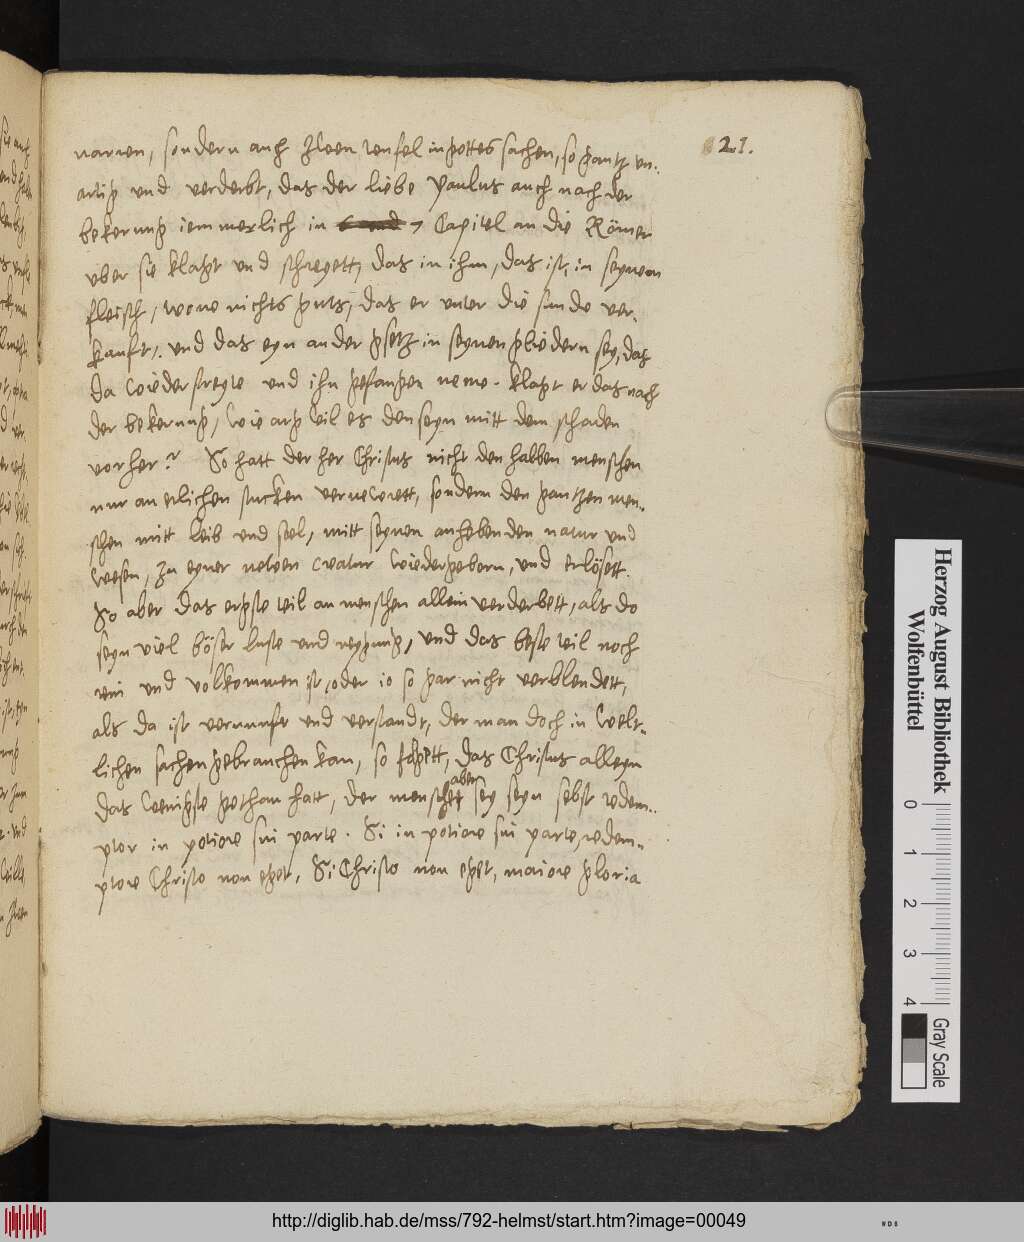 21.
narren, sondern auch zween teufel in gottes sachen, so gantz un-
artig und verderbt, das der liebe Paulus auch nach der
bekerung iemmerlich in 7 Capitel an die Römer
uber sie klagt und schreyett, das in ihm, das ist, in seynem
fleisch, wone nichts guts, das er unter die sunde ver-
kauft, und das eyn ander gsetz in seynen gliedern sey, das
da widerstreyte und ihn gefangen neme. klagt er das nach
der bekerung, wie arg wil es den seyn mitt dem schaden
vorher? So hatt der her Christus nicht den halben menschen
nur an etlichen stucken vernewett, sondern den gantzen men-
schen mitt leib und seel, mitt seynen anhebenden natur und
wesen, zu eyner newen creatur wiedergeborn, und erlösett.
So aber das ergste teil an menschen allein verderbett, als do
seyn viel böser luste und neygung, und das beste teil noch
rein und volkommen ist, oder io so gar nicht verblendett,
als da ist vernunft und verstandt, der man doch in welt-
lichen sachen gebrauchen kan, so folgett, das Christus alleyn
das wenigste gethan hatt, der mensch aber sey seyn selbst redem-
ptor in potiore sui parte. Si in potiore sui parte, redem-
ptore Christo non eget, Si Christo non eget, maiore gloria
Herzog August Bibliothek
Wolfenbüttel
0 1 2 3 4
Gray Scale
http://diglib.hab.de/mss/792-helmst/start.htm?image=00049